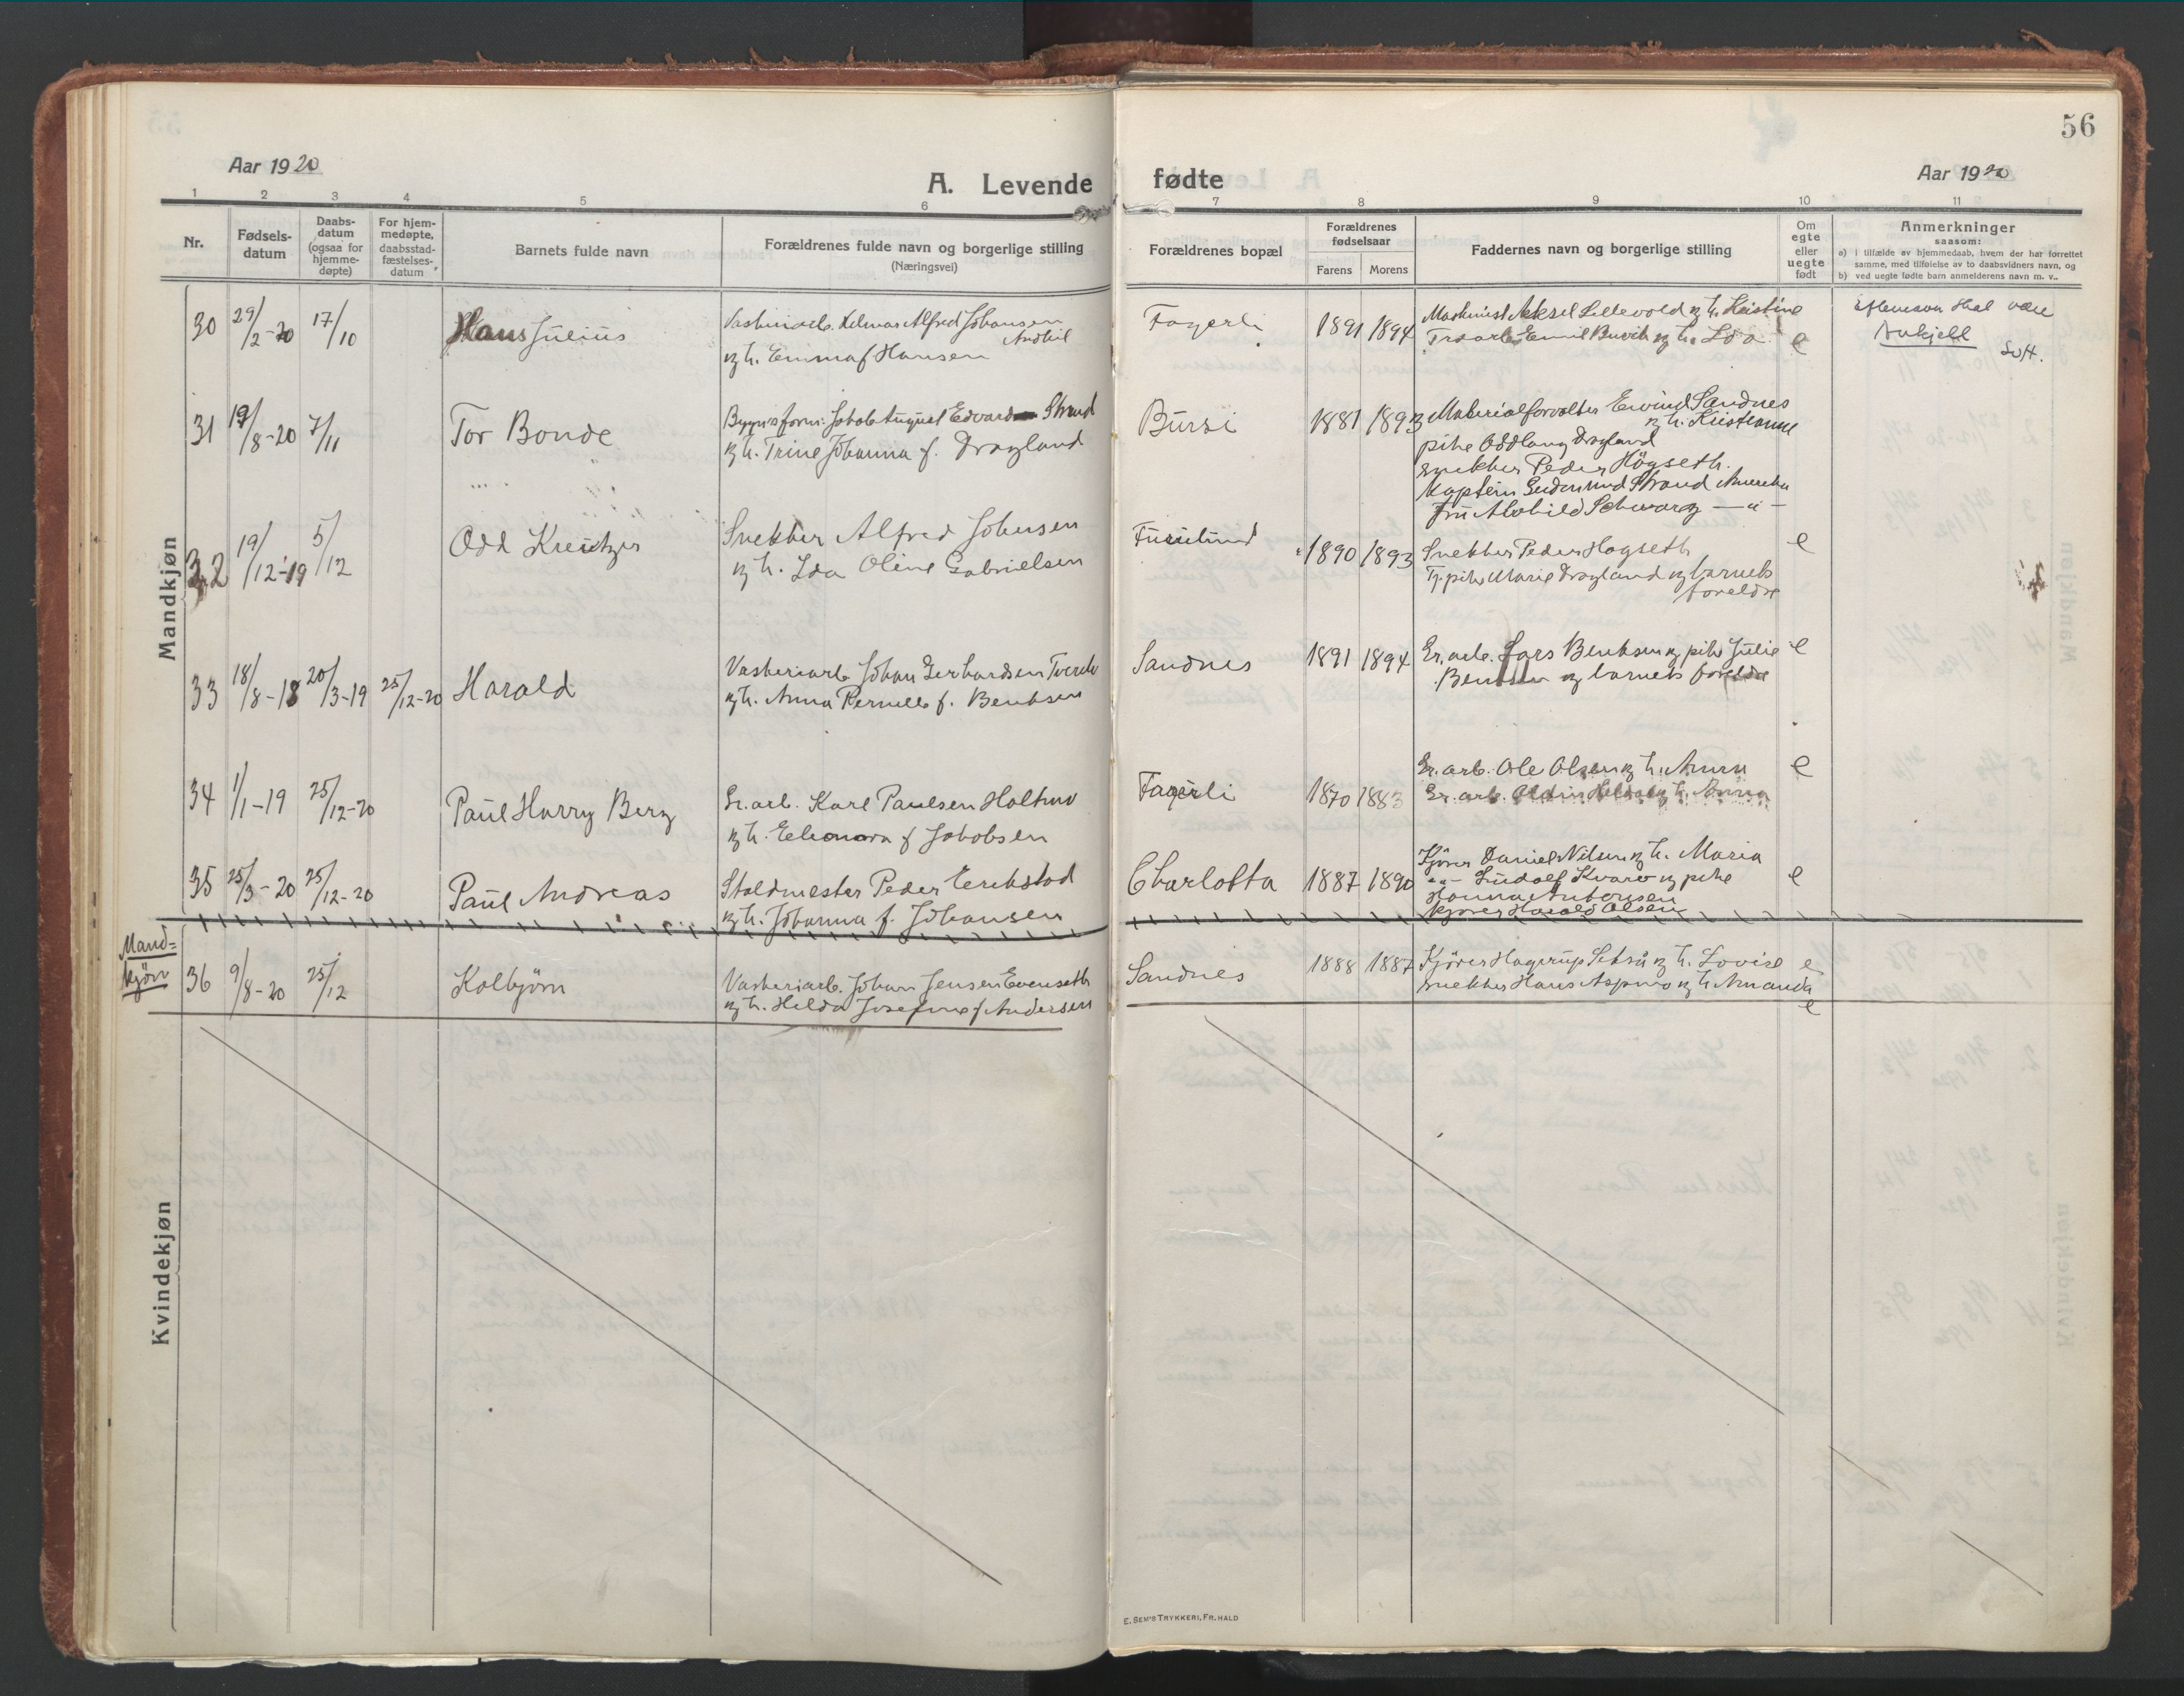 56
Aar 1920
A. Levende fødte
Aar 1920
1 2 3 4 5 6 7 8 9 10 11
Nr.
Fødsels-
datum
Daabs-
datum
(ogsaa for
hjemme-
døpte)
For hjem-
medøpte,
daabsstad-
fæstelses-
datum
Barnets fulde navn
Forældrenes fulde navn og borgerlige stilling
(Næringsvei)
Forældrenes bopæl
Forældrenes
fødselsaar
Farens Morens
Faddernes navn og borgerlige stilling
Om
egte
eller
uegte
født
Anmerkninger
saasom:
a) i tilfælde av hjemmedaab, hvem der har forrettet
samme, med tilføielse av to daabsvidners navn, og
b) ved uegte fødte barn anmelderens navn m. v..
Mandkjøn
30 29/2-20 17/10 Hans Julius
Vaskeriarb. Hilmar Alfred Johansen
og h. Emma f Hansen
Fagerli 1891 1894
Maskinist Aksel Lillevold og h. Kristine
Emil Buvik og h. Ida e
31 19/8-20 7/11 Tor Bonde
Jakob August Edvard Strand
og h. Trine Johanna f. Dragland
Bursi 1881 1893
Materialforvalter Eivind Sandnes
og h. Kristianne
pike Oddlaug Dragland
snekker Peder Høgseth.
Kaptein Strand Amerika
Fru Schwarz
32 19/12-19 5/12 Odd Kreutzer
Snekker Alfred Johnsen
og h. Ida Oline Gabrielsen
Furulund 1890 1893
Snekker Peder Høgseth e
Tj.pike Marie Dragland og barnets
foreldre
33 18/8-18 20/3-19 25/12-20 Harald
Vaskeriarb Johan Gerhardsen Tverå
og h. Anna Pernelle f. Bentsen
Sandnes 1891 1894
Gr. arb. Lars Bentsen og pike Julie e
Bentsen og barnets foreldre
34 1/1-19 25/12-20 Paul Harry Berg
Gr. arb. Karl Paulsen Holtmo
og h. Eleonora f Jakobsen
Fagerli 1870 1883
Gr. arb. Ole Olsen og h. Anna e
Gr. arb.
35 25/3-20 25/12-20 Paul Andreas
Staldmester Peder Erikstad
og h. Johanna f. Johansen
Charlotta 1887 1890
Kjører Daniel Nilsen og h. Maria
Ludolf Kvarv og pike e
Hanna Antonsen
kjører Harald Olsen
Mand-
kjøn
36 9/8-20 25/12 Kolbjørn
Vaskeriarb. Johan Jensen Evenseth
og h. Hilda Josefine f Andersen
Sandnes 1888 1887
Kjører Hagerup Setså og h. Lovise e
snekker Hans Aspmo og h Amanda
e
Kvindekjøn
E. SEM'S TRYKKERI, FR. HALD